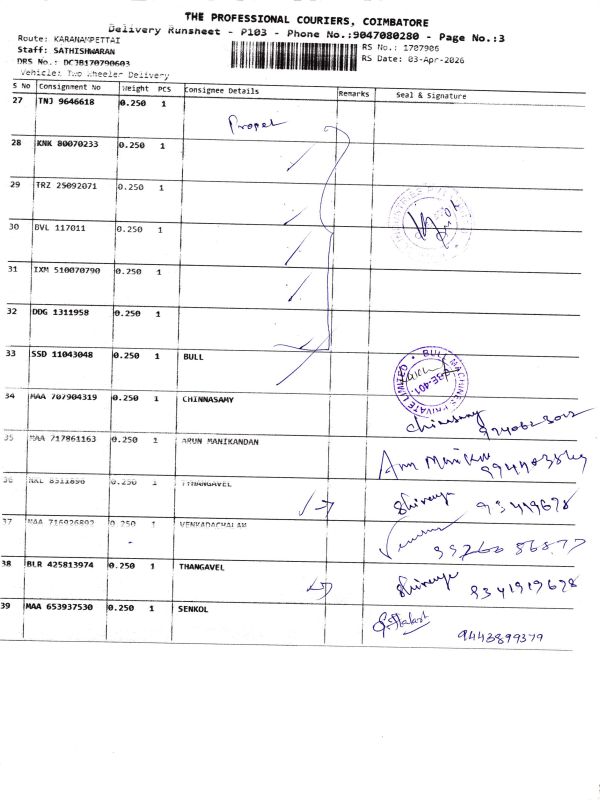 THE PROFESSIONAL COURIERS, COIMBATORE
Delivery Runsheet - P103 - Phone No.:9047080280 - Page No.:3
Route: KARANAMPETTAI
RS No.: 1707906
Staff: SATHISHWARAN
RS Date: 03-Apr-2026
DRS No.: DC3B170790603
Vehicle: Two Wheeler Delivery
S No Consignment No Weight PCS Consignee Details Remarks Seal & Signature
27 TNJ 9646618 0.250 1
Propel
28 KNK 80070233 0.250 1
29 TRZ 25092071 0.250 1
30 BVL 117011 0.250 1
31 IXM 510070790 0.250 1
32 DDG 1311958 0.250 1
33 SSD 11043048 0.250 1 BULL
BULL MACHINES PRIVATE LIMITED
34 MAA 707904319 0.250 1 CHINNASAMY
35 MAA 717861163 0.250 1 ARUN MANIKANDAN
36 NKL 8511890 0.250 1 THANGAVEL
37 MAA 716926892 0.250 1 VENKADACHALAM
38 BLR 425813974 0.250 1 THANGAVEL
9341919678
39 MAA 653937530 0.250 1 SENKOL
9443899379